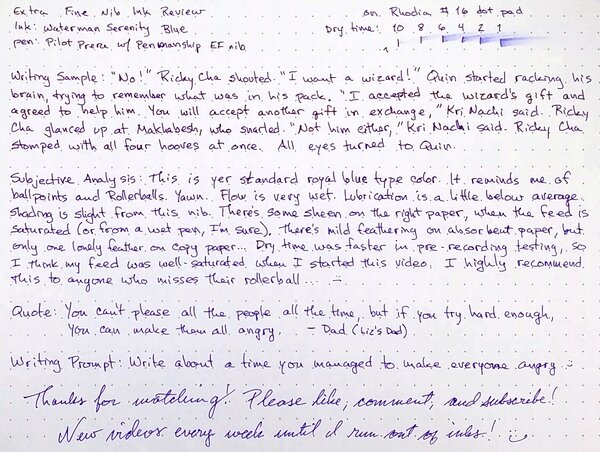 Extra Fine Nib Ink Review on Rhodia #16 dot pad
Ink: Waterman Serenity Blue Dry time: 10 8 6 4 2 1
pen: Pilot Prera w/ Penmanship EF nib
Writing Sample: "No!" Ricky Cha shouted. "I want a wizard!" Quin started racking his
brain, trying to remember what was in his pack. "I accepted the wizard's gift and
agreed to help him. You will accept another gift in exchange," Kri Nachi said. Ricky
Cha glanced up at Makhabesh, who snarled. "Not him either," Kri Nachi said. Ricky Cha
stomped with all four hooves at once. All eyes turned to Quin.
Subjective Analysis: This is yer standard royal blue type color. It reminds me of
ballpoints and Rollerballs. Yawn. Flow is very wet. Lubrication is a little below average.
Shading is slight from this nib. There's some sheen on the right paper, when the feed is
saturated (or from a wet pen, I'm sure). There's mild feathering on absorbent paper, but
only one lonely feather on copy paper... Dry time was faster in pre-recording testing, so
I think my feed was well-saturated when I started this video. I highly recommend
this to anyone who misses their rollerball... :)
Quote: You can't please all the people all the time, but if you try hard enough,
You can make them all angry. - Dad (Liz's Dad)
Writing Prompt: Write about a time you managed to make everyone angry :)
Thanks for watching! Please like, comment, and subscribe!
New videos every week until I run out of inks! :)